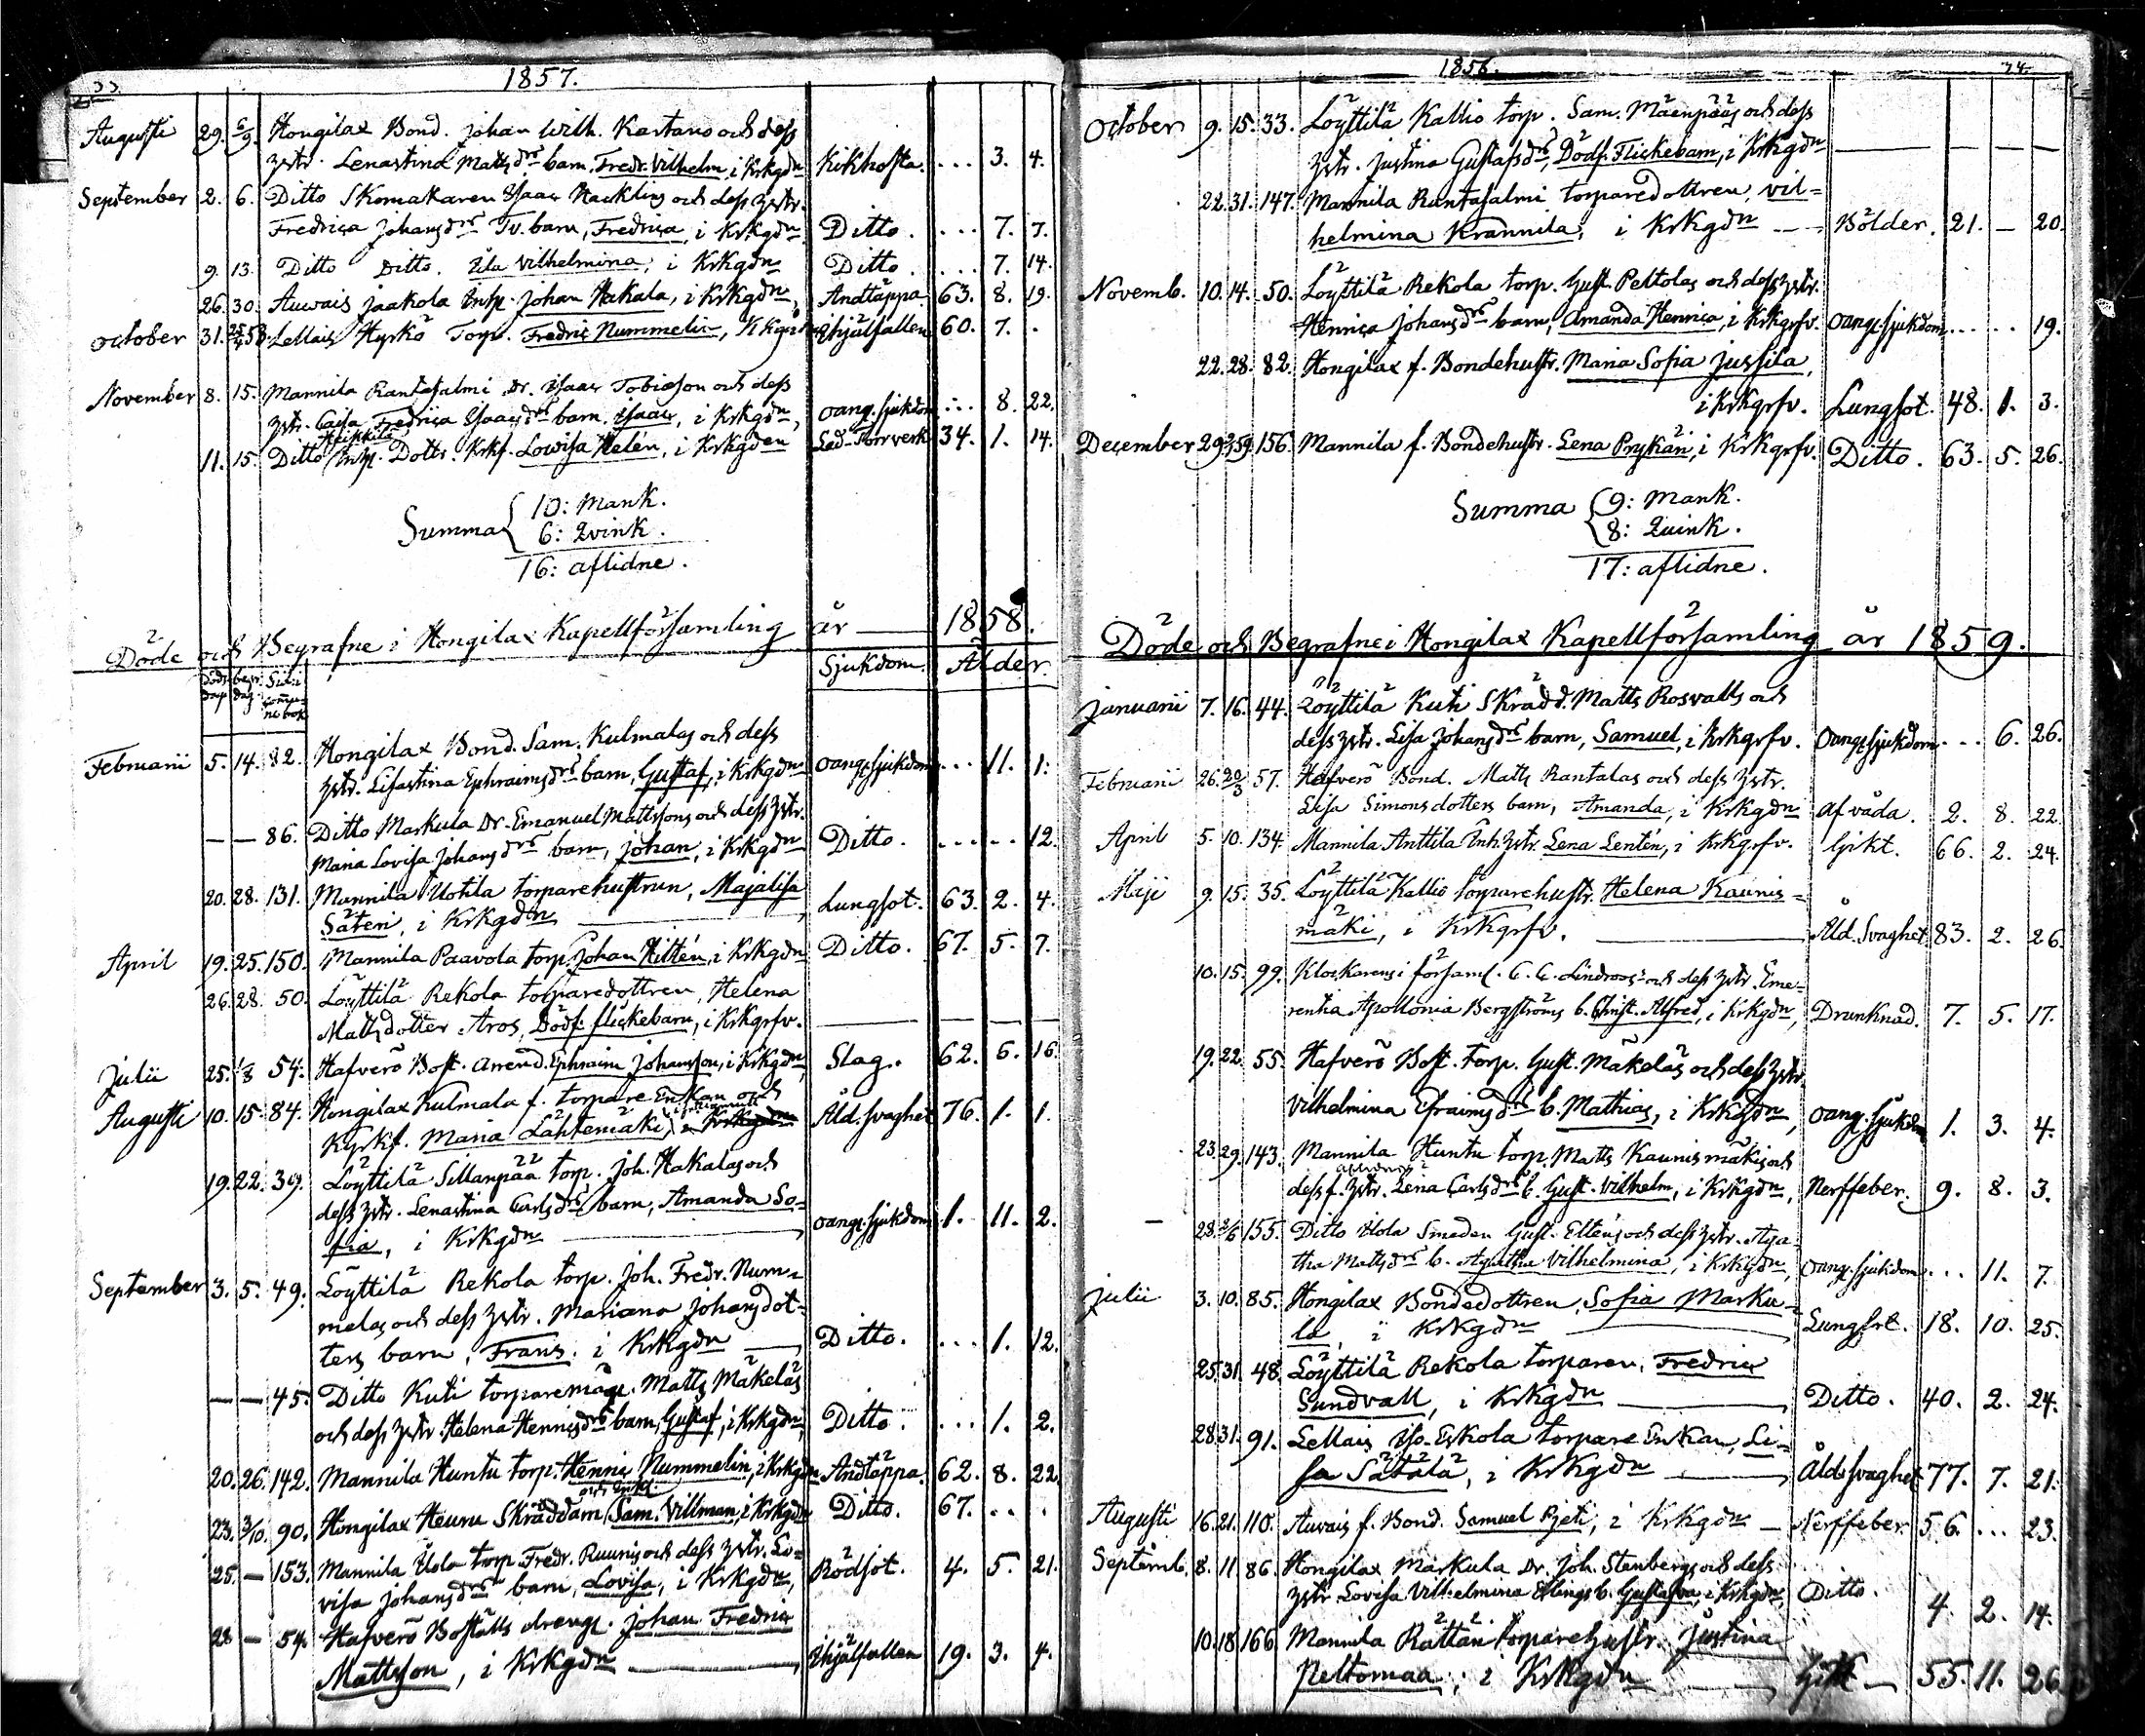 33
1857.
Augusti 29. 6/9. Hongilax Bond. Johan Wilh. Kartano och dess
hstr. Lenastina Matts dr barn, Fredr. Vilhelm, i Krkgdn Kikhosta. ... 3. 4.
September 2. 6. Ditto Skomakaren Isaac Hackling och dess hstr.
Fredrica Johans dr Tv. barn, Fredrica, i Krkgdn Ditto. ... 7. 7.
9. 13. Ditto Ditto. Ula Vilhelmina, i Krkgdn Ditto. ... 7. 14.
26. 30. Auvais Jaakola Inh. Johan Hakala, i Krkgdn, Andtäppa 63. 8. 19.
October 31. 58. Lellais Hyrkö Torp. Fredric Nummelin, Krkgdn Ihjälfallen 60. 7. .
November 8. 15. Mannila Rantasalmi Dr. Isaac Tobiæson och dess
hstr. Cajsa Fredrica Isaacs dr barn, Isaac, i Krkgdn, oang. sjukdom ... 8. 22.
Heikkilä
11. 15. Ditto Inh. Dottr. Krkf. Lowisa Helén, i Krkgden Led-Torrverk 34. 1. 14.
Summa 10: Mank.
6: Qvink.
16: aflidne.
Döde och Begrafne i Hongilax Kapellförsamling år 1858.
Döds dag begr. dag Sid. i comuni bok Sjukdom. Ålder.
Februarii 5. 14. 82. Hongilax Bond. Sam. Kulmalas och dess
hstr. Lisastina Ephraims dr barn, Gustaf, i Krkgdn oang. sjukdom ... 11. 1.
— — 86. Ditto Markula Dr. Emanuel Mattssons och dess hstr.
Maria Lovisa Johans dr barn, Johan, i Krkgdn Ditto. ... ... 12.
20. 28. 131. Mannila Uotila torparehustrun, Majalisa
Säteri, i Krkgdn — Lungsot. 63. 2. 4.
April 19. 25. 150. Mannila Paavola torp. Johan Hittén, i Krkgdn Ditto. 67. 5. 7.
26. 28. 50. Löyttilä Rekola torparedottren, Helena
Mattsdotter Aros, Dödf. flickebarn, i Krkgrfv. — — —
Julii 25. 1/8 54. Hafverö Bost. arrend. Ephraim Johansson, i Krkgdn, Slag. 62. 6. 16.
Augusti 10. 15. 84. Hongilax Kulmala f. torpare Enkan och
Kyrkf. Maria Lähtemäki, i Krkgdn Åld. svaghet 76. 1. 1.
19. 22. 39. Löyttilä Sillanpää torp. Joh. Hakalas och
dess hstr. Lenastina Carls dr barn, Amanda So-
fia, i Krkgdn — oang. sjukdom 1. 11. 2.
September 3. 5. 49. Löyttilä Rekola torp. Joh. Fredr. Num-
melas och dess hstr. Mariana Johansdot-
ters barn, Frans, i Krkgdn — Ditto. ... 1. 12.
— — 45. Ditto Kuti torparemåg. Matts Mäkeläs
och dess hstr. Helena Hennics dr barn, Gustaf, i Krkgdn, Ditto. ... 1. 2.
20. 26. 142. Mannila Huntu torp. Hennic Nummelin, i Krkgdn Andtäppa. 62. 8. 22.
23. 3/10 90. Hongilax Heuru Skräddarn, Sam. Villman, i Krkgdn Ditto. 67. . .
25. — 153. Mannila Uola torp. Fredr. Ruunis och dess hstr. Lo-
visa Johans dr barn, Lovisa, i Krkgdn, Rödsot. 4. 5. 21.
28 — 54. Hafverö Boställs dreng. Johan Fredric
Mattsson, i Krkgdn — Ihjälfallen 19. 3. 4.
1858.
34.
October 9. 15. 33. Löyttilä Kallio torp. Sam. Mäenpääs och dess
hstr. Justina Gustafs dr, Dödf. Flickebarn, i Krkgdn — — — —
22. 31. 147. Mannila Rantasalmi torparedottren, Vil-
helmina Krannila, i Krkgdn — Bölder. 21. — 20.
Novemb. 10. 14. 50. Löyttilä Rekola torp. Gust. Peltolas och dess hstr.
Henrica Johans dr barn, Amanda Henrica, i Krkgrfv. Oang. sjukdom ... .. 19.
22. 28. 82. Hongilax f. Bondehustr. Maria Sofia Jussila,
i Krkgrfv. Lungsot. 48. 1. 3.
December 29. 156. Mannila f. Bondehustr. Lena Prykäri, i Krkgrfv. Ditto. 63. 5. 26.
Summa 9: Mank.
8: Quink.
17: aflidne.
Döde och Begrafne i Hongilax Kapellförsamling år 1859.
Januarii 7. 16. 44. Löyttilä Kuti Skrädd. Matts Rosvalls och
dess hstr. Lisa Johans dr barn, Samuel, i Krkgrfv. Oang. sjukdom ... 6. 26.
Februarii 26. 20/3 57. Hafverö Bond. Matts Rantalas och dess hstr.
Lisa Simonsdotters barn, Amanda, i Krkgdn Af våda. 2. 8. 22.
April 5. 10. 134. Mannila Anttila Inh. hstr. Lena Lentén, i Krkgrfv. Gikt. 66. 2. 24.
Maji 9. 15. 35. Löyttilä Kallio torparehustr. Helena Kaunis-
mäki, i Krkgrfv. — Åld. Svaghet 83. 2. 26.
10. 15. 99. Klockarens i församl. C. C. Lindroos's och dess hstr. Eme-
rentia Apollonia Bergströms b. Christ. Alfred, i Krkgdn, Drunknad. 7. 5. 17.
19. 22. 55. Hafverö Bost. Torp. Gust. Mäkeläs och dess hstr
Vilhelmina Efraims dr b. Mathias, i Krkgdn, oang. sjukdom 1. 3. 4.
23. 29. 143. Mannila Huntu torp. Matts Kaunismäkis och
aflidne
dess f. hstr. Lena Carls dr b. Gust. Vilhelm, i Krkgdn, Nerffeber. 9. 8. 3.
28. 2/6 155. Ditto Uola Smeden Gust. Elténs och dess hstr. Aga-
tha Matts dr b. Agatha Vilhelmina, i Krkgdn, Oang. sjukdom ... 11. 7.
Julii 3. 10. 85. Hongilax Bondedottren, Sofia Marku-
la, i Krkgdn — Lungsot. 18. 10. 25.
25. 31. 48. Löyttilä Rekola torparen, Fredric
Sundvall, i Krkgdn — Ditto. 40. 2. 24.
28. 31. 91. Lellais Iso-Eskola torpare Enkan, Li-
sa Sätälä, i Krkgdn — Åld. svaghet 77. 7. 21.
Augusti 16. 21. 110. Auvais f. Bond. Samuel Pjeti, i Krkgdn — Nerffeber 56. ... 23.
Septemb. 8. 11. 86. Hongilax Markula Dr. Joh. Stenbergs och dess
hstr Lovisa Vilhelmina Ellings b. Gustafva, i Krkgdn, Ditto. 4. 2. 14.
10. 18. 166 Mannila Rättäri torparehustr. Justina
Peltomaa, i Krkgdn — Gikt — 55. 11. 26.